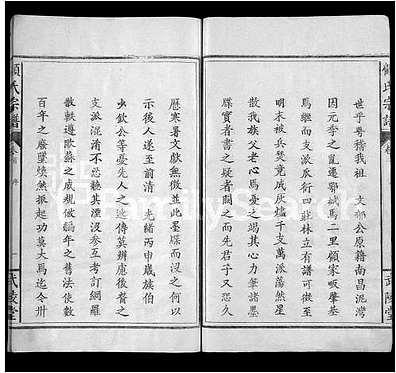 顧氏宗譜
世乎粤稽我祖　文郁公原籍南昌泥灣
因元季之亂遷鄂城馬二里顧宋畈肇基
馬繼而支派衍四莊林立有譜可徵至
明末被兵燹竟成灰燼千支萬派落然星
散我族父老心焉憂之竭其心力筆諸墨
牒實者書之疑者闕之而先君子又恐久
歷寒暑文獻無徵並此墨牒而沒之何以
示後人遂至前清　光緒丙申歲族伯
欽公等憂先人之迹傳莫辨慮後裔之
支派混淆不忍聽其湮沒參互考訂網羅
散軼遵歐蘇之成規倣編年之舊法使數
百年之廢墜煥然振起功莫大焉迄今卅
顧氏宗譜
序
武陵堂
武陵堂